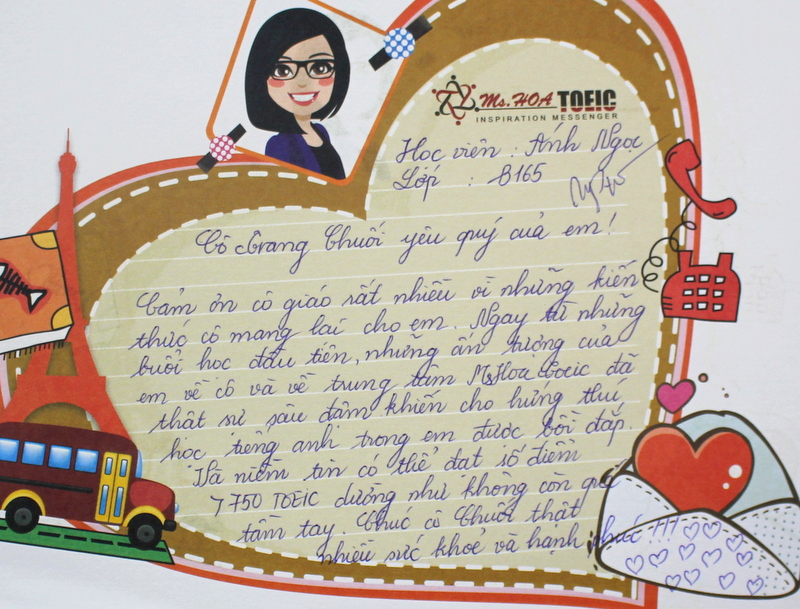 Ms. HOA TOEIC
INSPIRATION MESSENGER
Học viên : Ánh Ngọc
Lớp : B165
Cô Trang Chuối yêu quý của em!
Cảm ơn cô giáo rất nhiều vì những kiến
thức cô mang lại cho em. Ngay từ những
buổi học đầu tiên, những ấn tượng của
em về cô và về trung tâm Ms Hoa Toeic đã
thật sự sâu đậm khiến cho hứng thú
học tiếng anh trong em được bồi đắp.
Và niềm tin có thể đạt số điểm
7 750 TOEIC dường như không còn quá
tầm tay. Chúc cô Chuối thật
nhiều sức khoẻ và hạnh phúc !!!